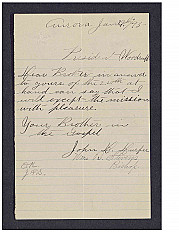 Aurora Jan
President Woodruff
Dear Brother in answer
to yours of the 20th at
hand can say that I
will except the mission
with pleasure.
Your Brother in
the Gospel
John
Bishop